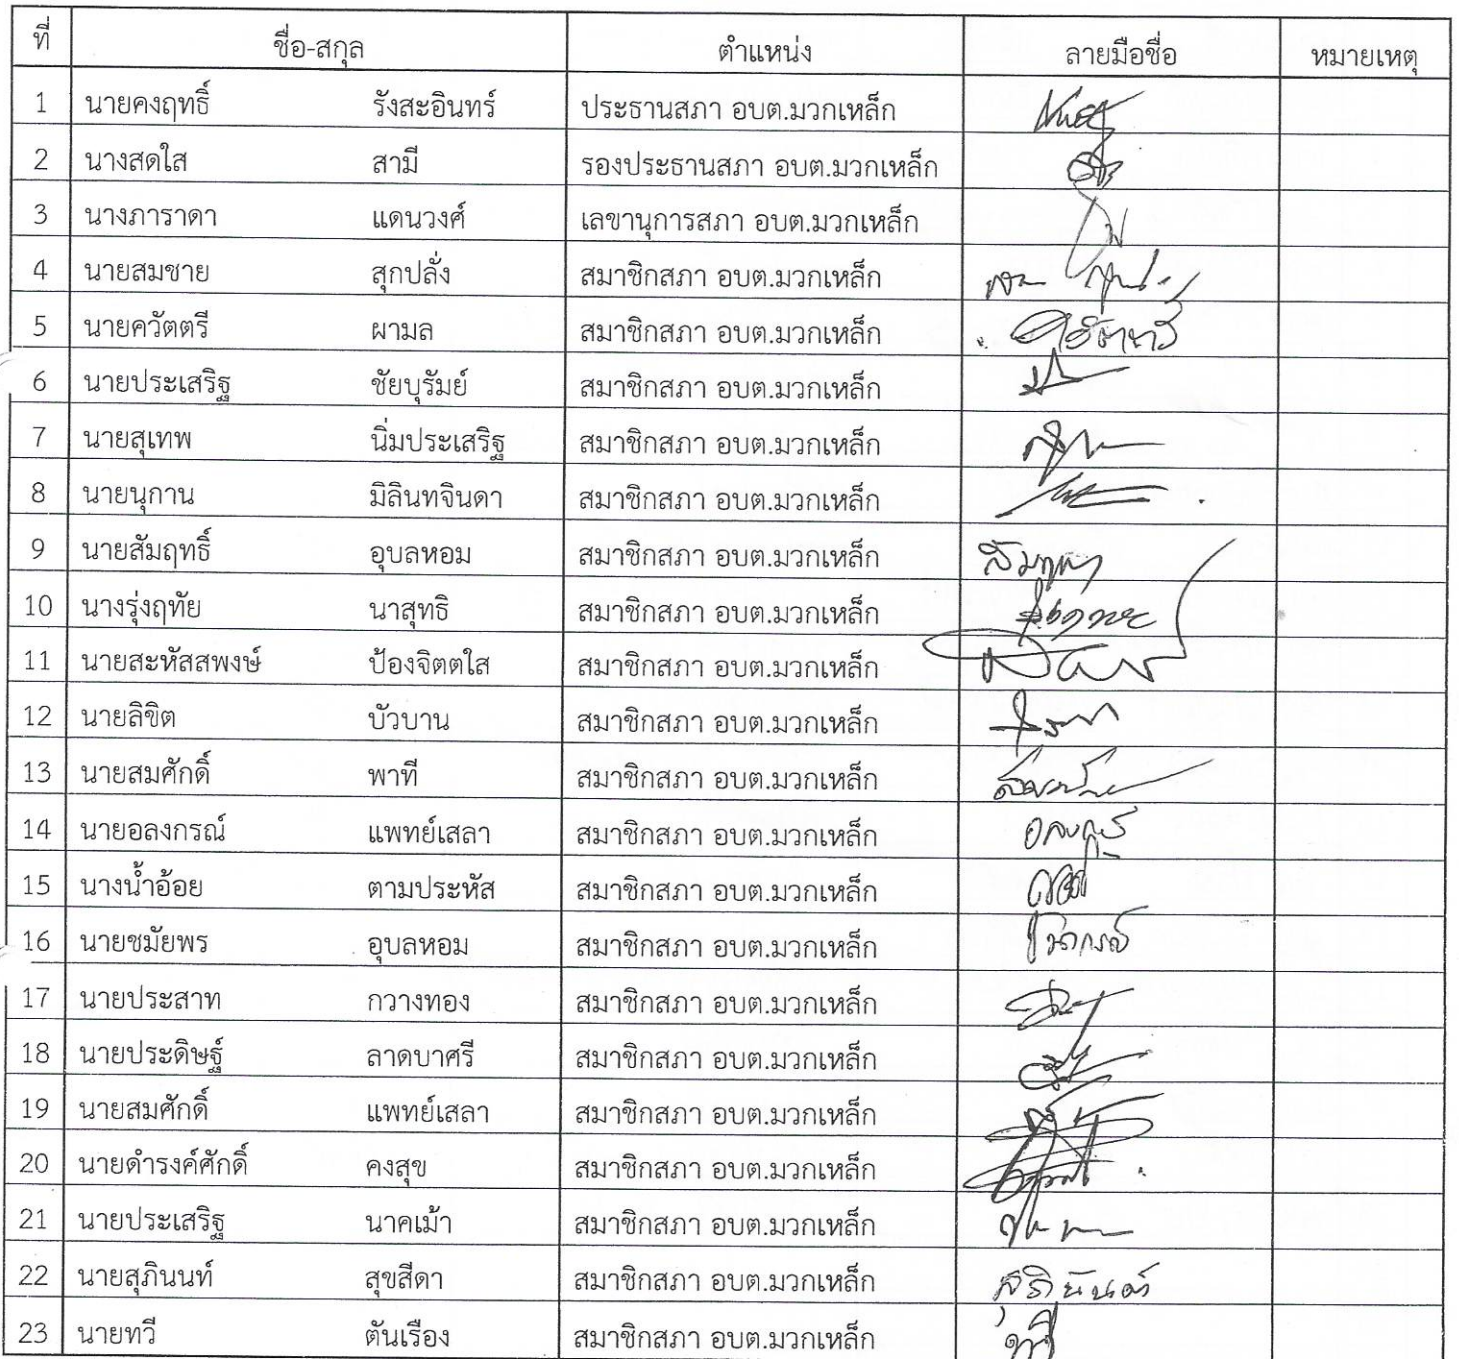 ที่ ชื่อ-สกุล ตำแหน่ง ลายมือชื่อ หมายเหตุ
1 นายคงฤทธิ์ รังสะอินทร์ ประธานสภา อบต.มวกเหล็ก
2 นางสดใส สามี รองประธานสภา อบต.มวกเหล็ก
3 นางภาราดา แดนวงศ์ เลขานุการสภา อบต.มวกเหล็ก
4 นายสมชาย สุกปลั่ง สมาชิกสภา อบต.มวกเหล็ก
5 นายควัตตรี ผามล สมาชิกสภา อบต.มวกเหล็ก
6 นายประเสริฐ ชัยบุรัมย์ สมาชิกสภา อบต.มวกเหล็ก
7 นายสุเทพ นิ่มประเสริฐ สมาชิกสภา อบต.มวกเหล็ก
8 นายนุกาน มิลินทจินดา สมาชิกสภา อบต.มวกเหล็ก
9 นายสัมฤทธิ์ อุบลหอม สมาชิกสภา อบต.มวกเหล็ก
10 นางรุ่งฤทัย นาสุทธิ สมาชิกสภา อบต.มวกเหล็ก
11 นายสะหัสสพงษ์ ป้องจิตตใส สมาชิกสภา อบต.มวกเหล็ก
12 นายลิขิต บัวบาน สมาชิกสภา อบต.มวกเหล็ก
13 นายสมศักดิ์ พาที สมาชิกสภา อบต.มวกเหล็ก
14 นายอลงกรณ์ แพทย์เสลา สมาชิกสภา อบต.มวกเหล็ก
15 นางน้ำอ้อย ตามประหัส สมาชิกสภา อบต.มวกเหล็ก
16 นายชมัยพร อุบลหอม สมาชิกสภา อบต.มวกเหล็ก
17 นายประสาท กวางทอง สมาชิกสภา อบต.มวกเหล็ก
18 นายประดิษฐ์ ลาดบาศรี สมาชิกสภา อบต.มวกเหล็ก
19 นายสมศักดิ์ แพทย์เสลา สมาชิกสภา อบต.มวกเหล็ก
20 นายดำรงค์ศักดิ์ คงสุข สมาชิกสภา อบต.มวกเหล็ก
21 นายประเสริฐ นาคเม้า สมาชิกสภา อบต.มวกเหล็ก
22 นายสุภินนท์ สุขสีดา สมาชิกสภา อบต.มวกเหล็ก
23 นายทวี ตันเรือง สมาชิกสภา อบต.มวกเหล็ก